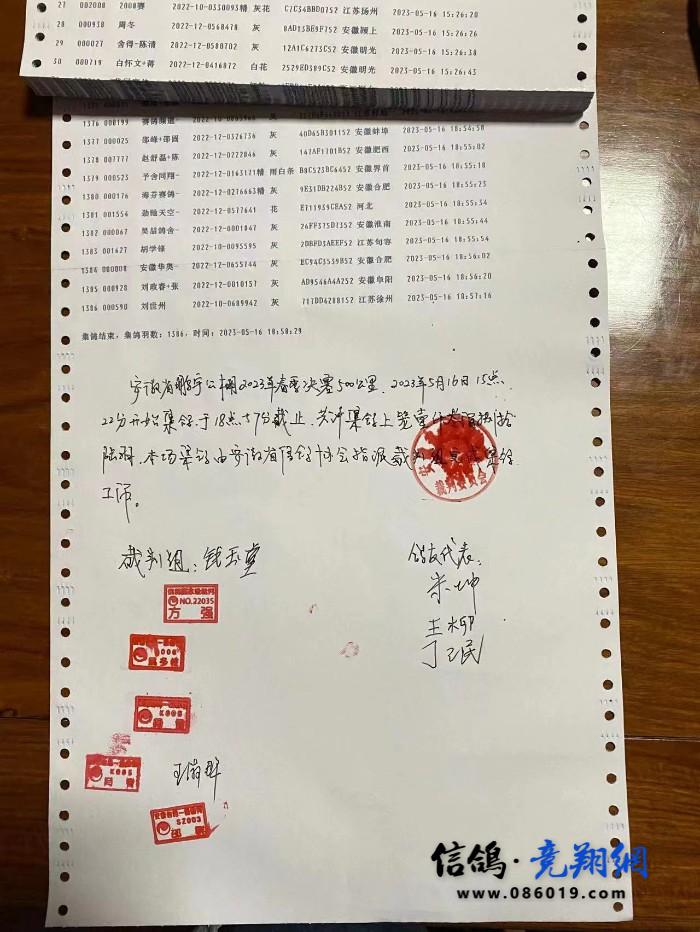 27 002008 2008赛 2022-10-0330093精 灰花 C7C34BBD0752 江苏扬州 2023-05-16 15:26:20
28 000938 周冬 2022-12-0568478 灰 8AD13BE9F752 安徽颍上 2023-05-16 15:26:26
29 000027 舍得-陈清 2022-12-0580702 灰 12A1C6273C52 安徽明光 2023-05-16 15:26:38
30 000719 白怀文+蒋 2022-12-0416872 白花 2529ED389C52 安徽明光 2023-05-16 15:26:43
1376 000199 赛鸽频道-
1377 000025 邵峰+邵圆 2022-12-0326736 灰 40D65B301152 安徽蚌埠 2023-05-16 18:54:50
1378 007777 赵舒磊+陈 2022-12-0222846 灰 147AF1701B52 安徽肥西 2023-05-16 18:55:02
1379 000523 予舍同翔- 2022-12-0163121精 雨白条 B8C523BC6452 安徽界首 2023-05-16 18:55:18
1380 000176 海芬赛鸽- 2022-12-0276663精 灰 9E31DB224B52 安徽合肥 2023-05-16 18:55:23
1381 001554 劲翰天空- 2022-12-0577641 花 E711939CEA52 河北 2023-05-16 18:55:34
1382 000067 昊喆鸽舍- 2022-12-0001847 灰 26FF375D7352 安徽淮南 2023-05-16 18:55:44
1383 001627 胡学锋 2022-10-0095595 灰 2DBFD3AEEF52 江苏句容 2023-05-16 18:55:54
1384 000008 安徽华奥- 2022-12-0655744 灰 EC94C3539B52 安徽合肥 2023-05-16 18:56:02
1385 000928 刘政春+张 2022-12-0010157 灰 AD9546A4A252 安徽阜阳 2023-05-16 18:56:20
1386 000590 刘世州 2022-10-0689942 灰 717DD4288152 江苏徐州 2023-05-16 18:57:16
集鸽结束，集鸽羽数：1386，时间：2023-05-16 18:58:29
安徽省鹏宇公棚2023年春季决赛500公里，2023年5月16日15点
22分开始集鸽，于18点57分截止，共计集鸽上笼壹仟叁佰捌拾
陆羽，本场集鸽由安徽省信鸽协会指派裁判组负责集鸽
工作。
裁判委员会
裁判组：钱玉堂
鸽友代表：
朱坤
NO.22035
方强
K005
SZ003
信鸽·竞翔網
www.086019.com